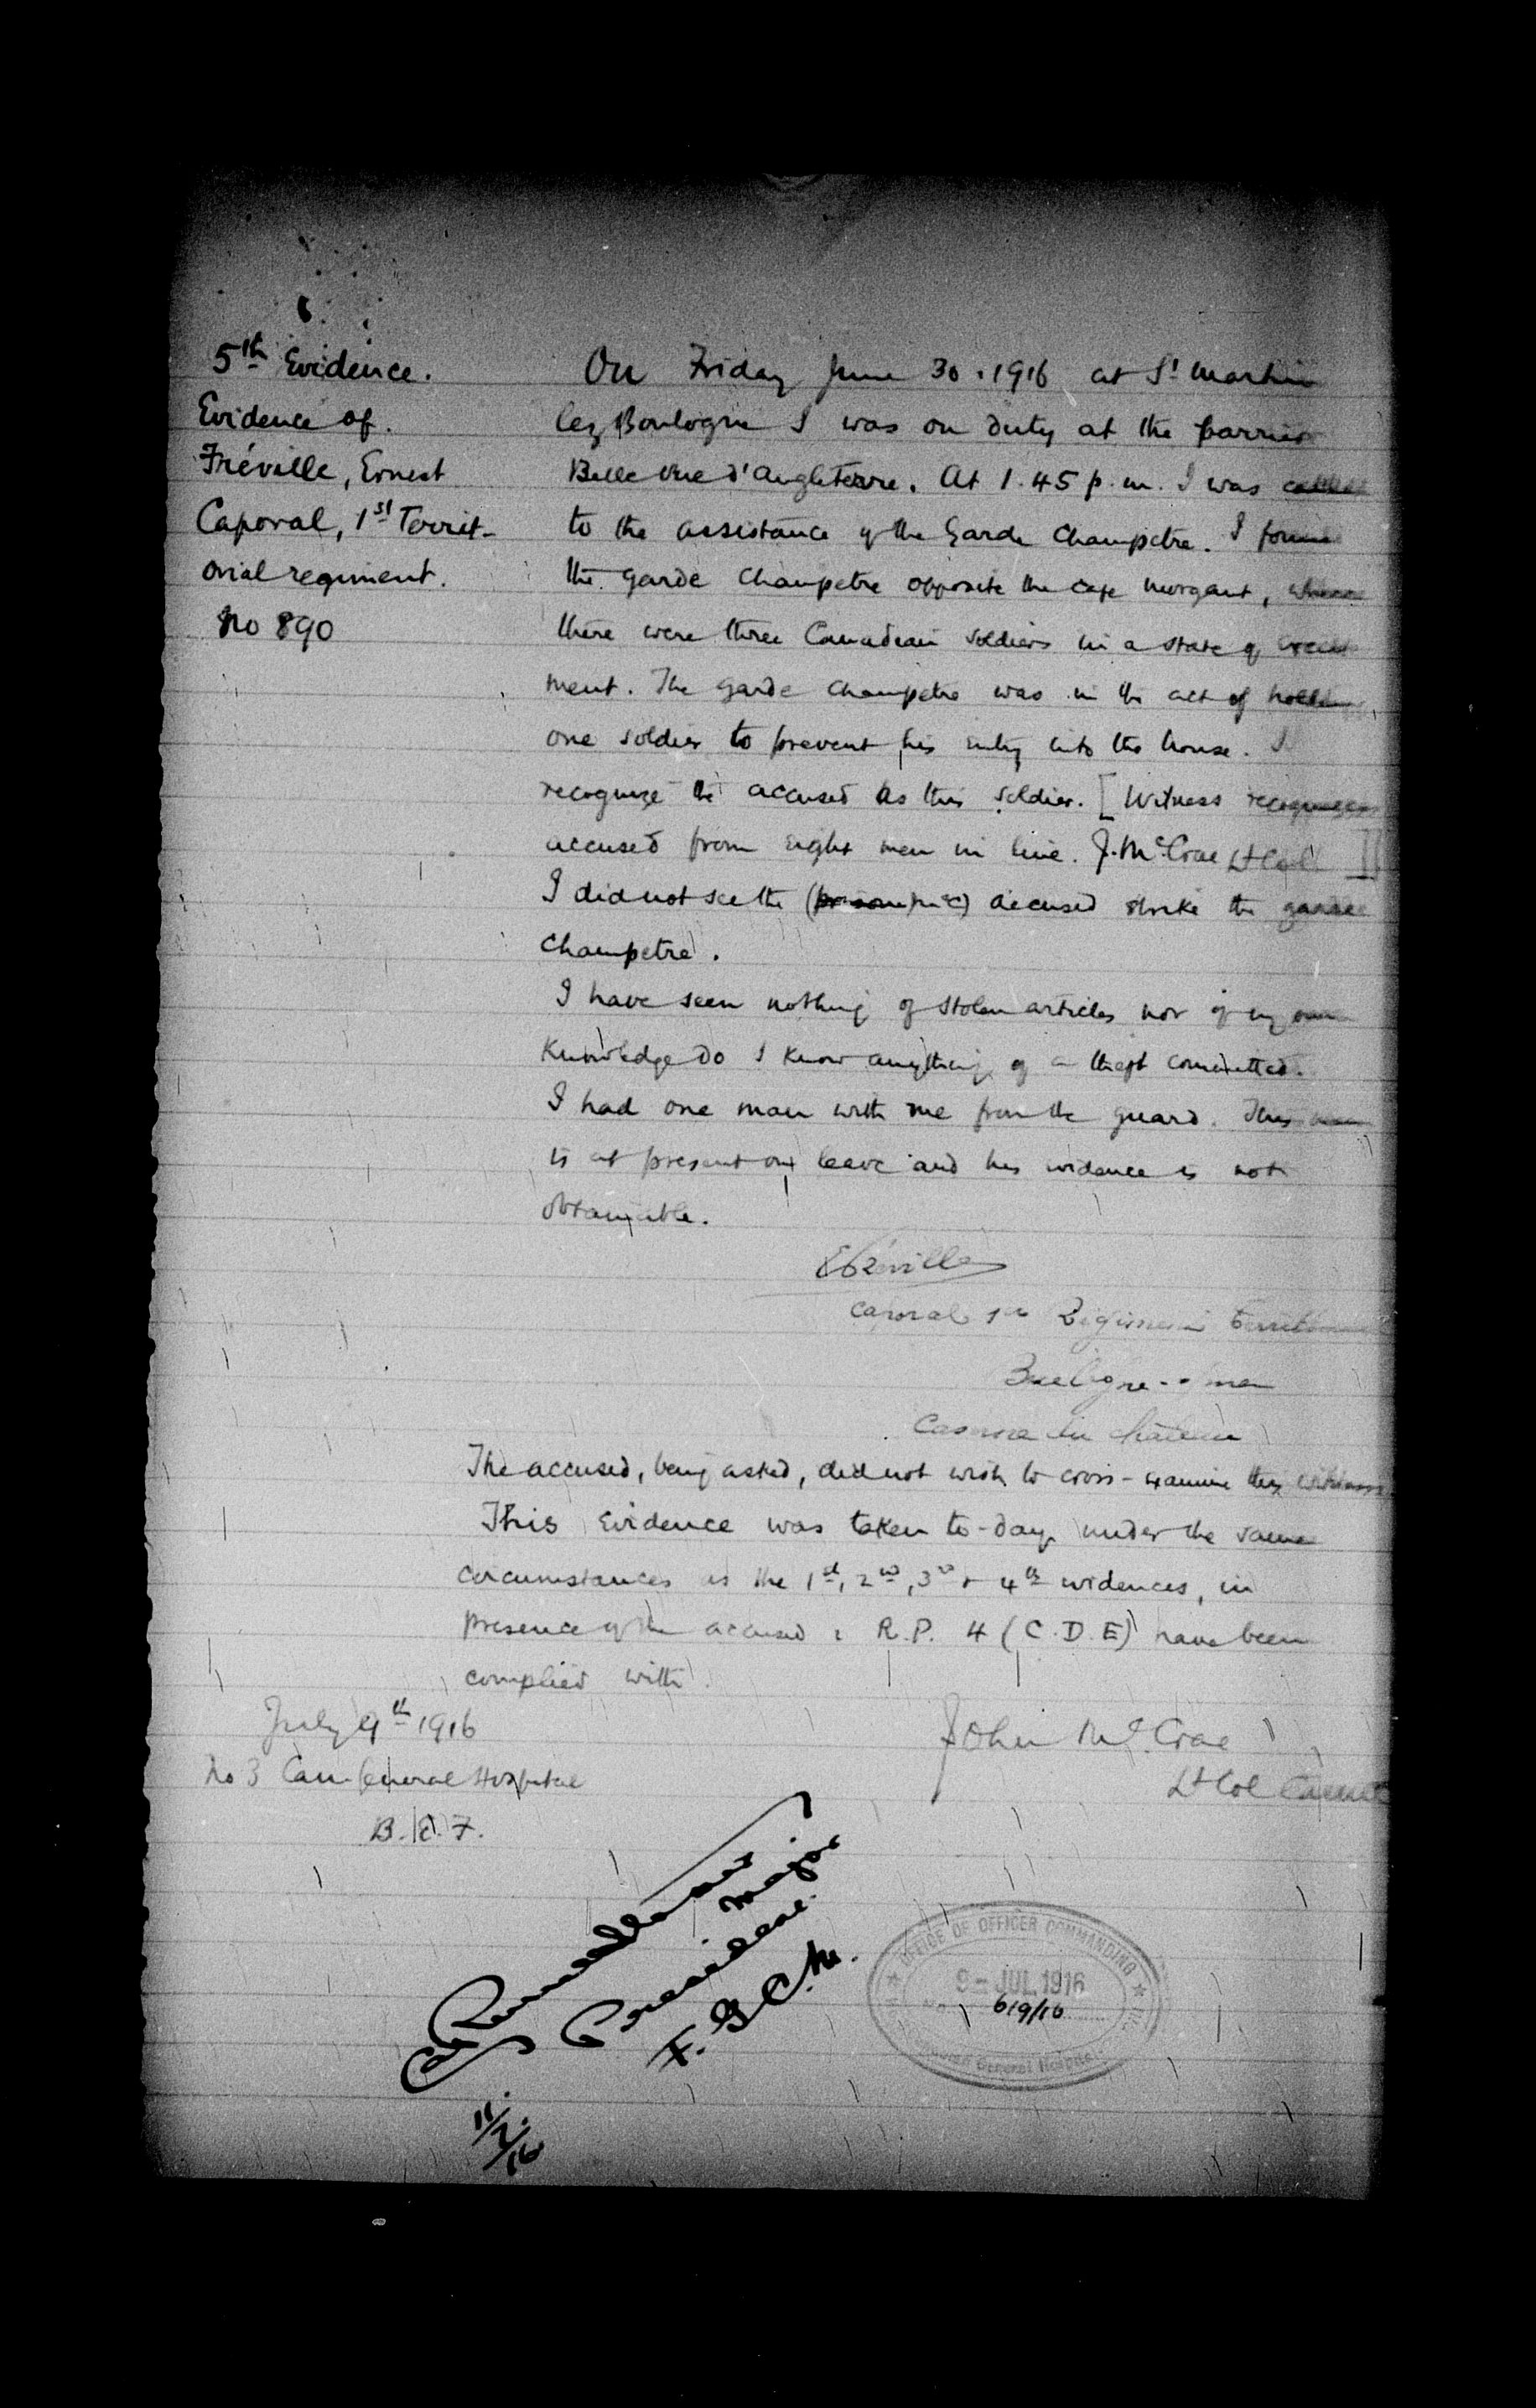 5th Evidence.
Evidence of.
Fréville, Ernest
Caporal, 1st Territ-
orial regiment.
No 890
On Friday June 30. 1916 at St Martin
lez Boulogne I was on duty at the barrier
Belle Vue d'Angleterre. At 1.45 p.m. I was called
to the assistance of the Garde Champetre. I found
the Garde Champetre opposite the cafe Morgant, where
there were three Canadian soldiers in a state of excite
ment. The Garde Champetre was in the act of holding
one soldier to prevent his entry into the house. I
recognize the accused as this soldier. [Witness recognizes
accused from eight men in line. J. McCrae Lt Col]
I did not see the (prisoner) accused strike the garde
Champetre.
I have seen nothing of stolen articles nor of my own
knowledge do I know anything of a theft committed.
I had one man with me from the guard. This man
is at present on leave and his evidence is not
obtainable.
EFréville
Caporal 1er Régiment Territorial
Boulogne s mer
Caserne du château
The accused, being asked, did not wish to cross-examine this witness
This Evidence was taken to-day under the same
circumstances as the 1st, 2nd, 3rd + 4th evidences, in
presence of the accused: R.P. 4 (C.D.E) have been
complied with.
July 9th 1916
No 3 Can. General Hospital
B.E.F.
John McCrae
Lt Col
Major
President
F.G.C.M.
11/7/16
OFFICE OF OFFICER COMMANDING
9 - JUL 1916
No 619/16
Canadian General Hospital